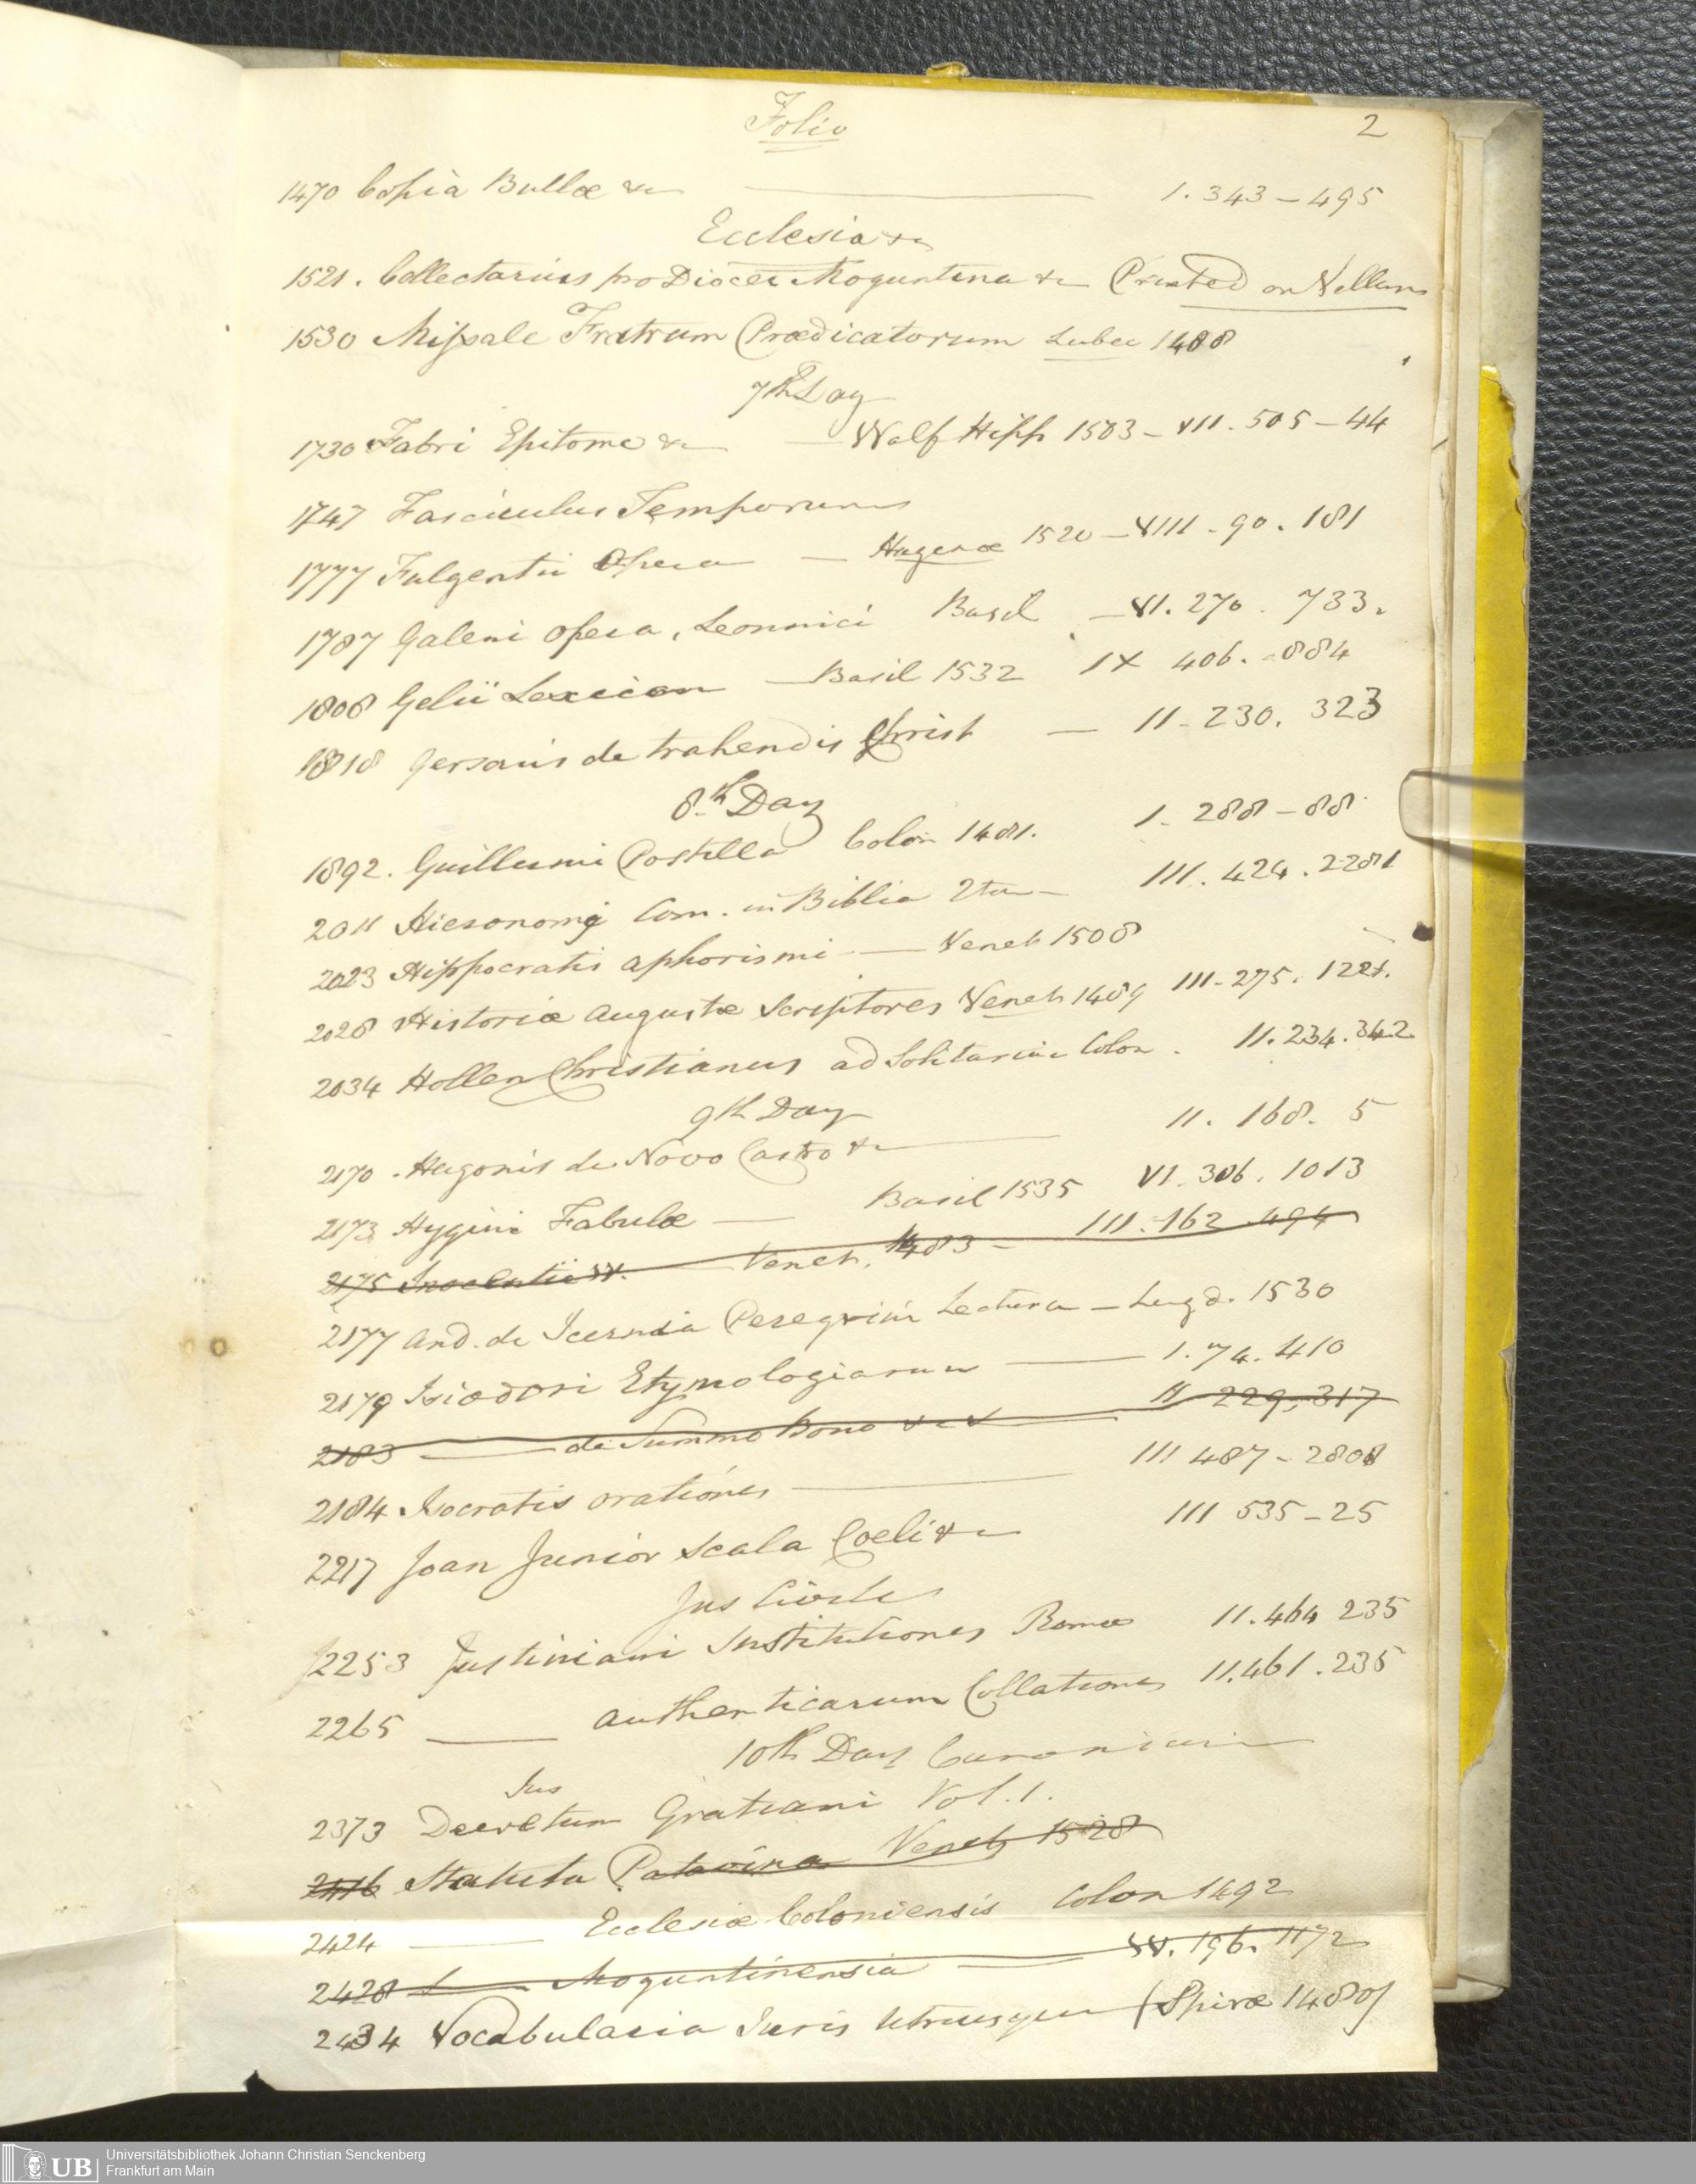 Folio
2
1470 Copia Bullæ &c — 1. 343 - 495
Ecclesia &c
1521. Collectarius pro Diocei Moguntina &c Printed on Vellum
1530 Missale Fratrum Prædicatorum Lubec 1488
7th Day
1730 Fabri Epitome &c — Wolf Hipp 1583 - VII. 505 - 44
1747 Fasciculus Temporum
1777 Fulgentii Opera — Hagenæ 1520 - VIII - 90. 181
1787 Galeni Opera, Leonnici Basil - VI. 270. 733.
1808 Gelii Lexicon — Basil 1532 IX 406. - 884
1818 Gersonis de trahendis Christ — II - 230. 323
8th Day
1892. Guillermi Postilla Colon 1481. 1. 288 - 88
2011 Hieronomy Com. in Biblia III. 424. 2281
2023 Hippocratis Aphorismi — Venet 1508
2028 Historiæ Augustæ Scriptores Venet 1489 III - 275. 1221.
2034 Hollen Christianus ad Solitariæ Colon. II. 234. 342
9th Day
2170. Hugonis de Novo Castro &c — II. 168. 5
2173 Hygini Fabulæ — Basil 1535 VI. 306. 1013
2175 Inocentii &c. — Venet. 1483 - III. 162 494
2177 And. de Icernia Peregrini Lectura - Lugd. 1530
2179 Isiodori Etymologiarum — 1. 74. 410
2183 — de Summo Bono &c II 229. 317
2184 Isocratis orationes — III 487 - 2808
2217 Joan Junior Scala Coeli &c III 535 - 25
Jus Civile
2253 Justiniani Institutiones Romæ II. 464 235
2265 — Authenticarum Collationes II. 461. 235
10th Day Canonicum
Jus
2373 Decretum Gratiani Vol. 1.
2416 Statuta Patavina Venet 1528
2424 — Ecclesiæ Coloniensis Colon 1492
2428 — Moguntinensia — IV. 196. 1172
2434 Vocabularia Juris Utriusque (Spiræ 1480)
UB
Universitätsbibliothek Johann Christian Senckenberg
Frankfurt am Main